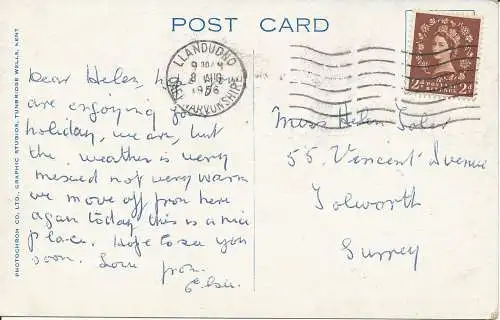 POST CARD
LLANDUDNO
9 30AM
8 AUG
1956
CAERNARVONSHIRE
POSTAGE REVENUE
2d 2d
Dear Helen,
are enjoying
holiday, we are, but
the weather is very
mixed not very warm
we move off from here
again today this is a nice
place. Hope to see you
soon. Love from.
Elsie.
Miss Helen
55. Vincent Avenue
Tolworth
Surrey
PHOTOCHROM CO., LTD., GRAPHIC STUDIOS, TUNBRIDGE WELLS, KENT